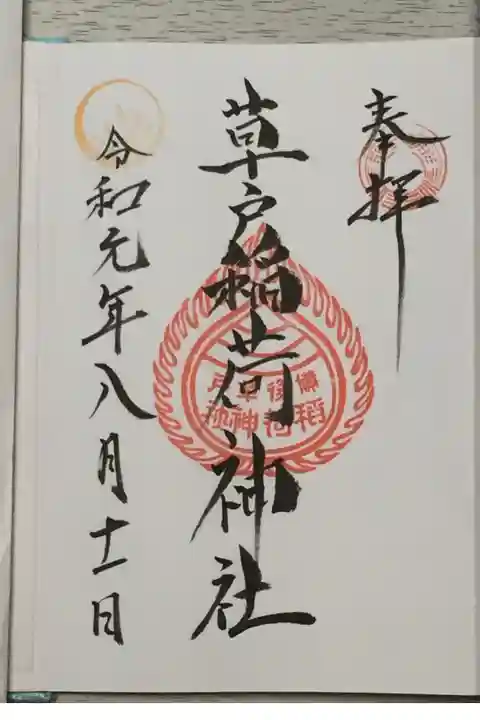 奉拝
草戸稲荷神社
令和元年八月十一日
備後草戸
稲荷神社